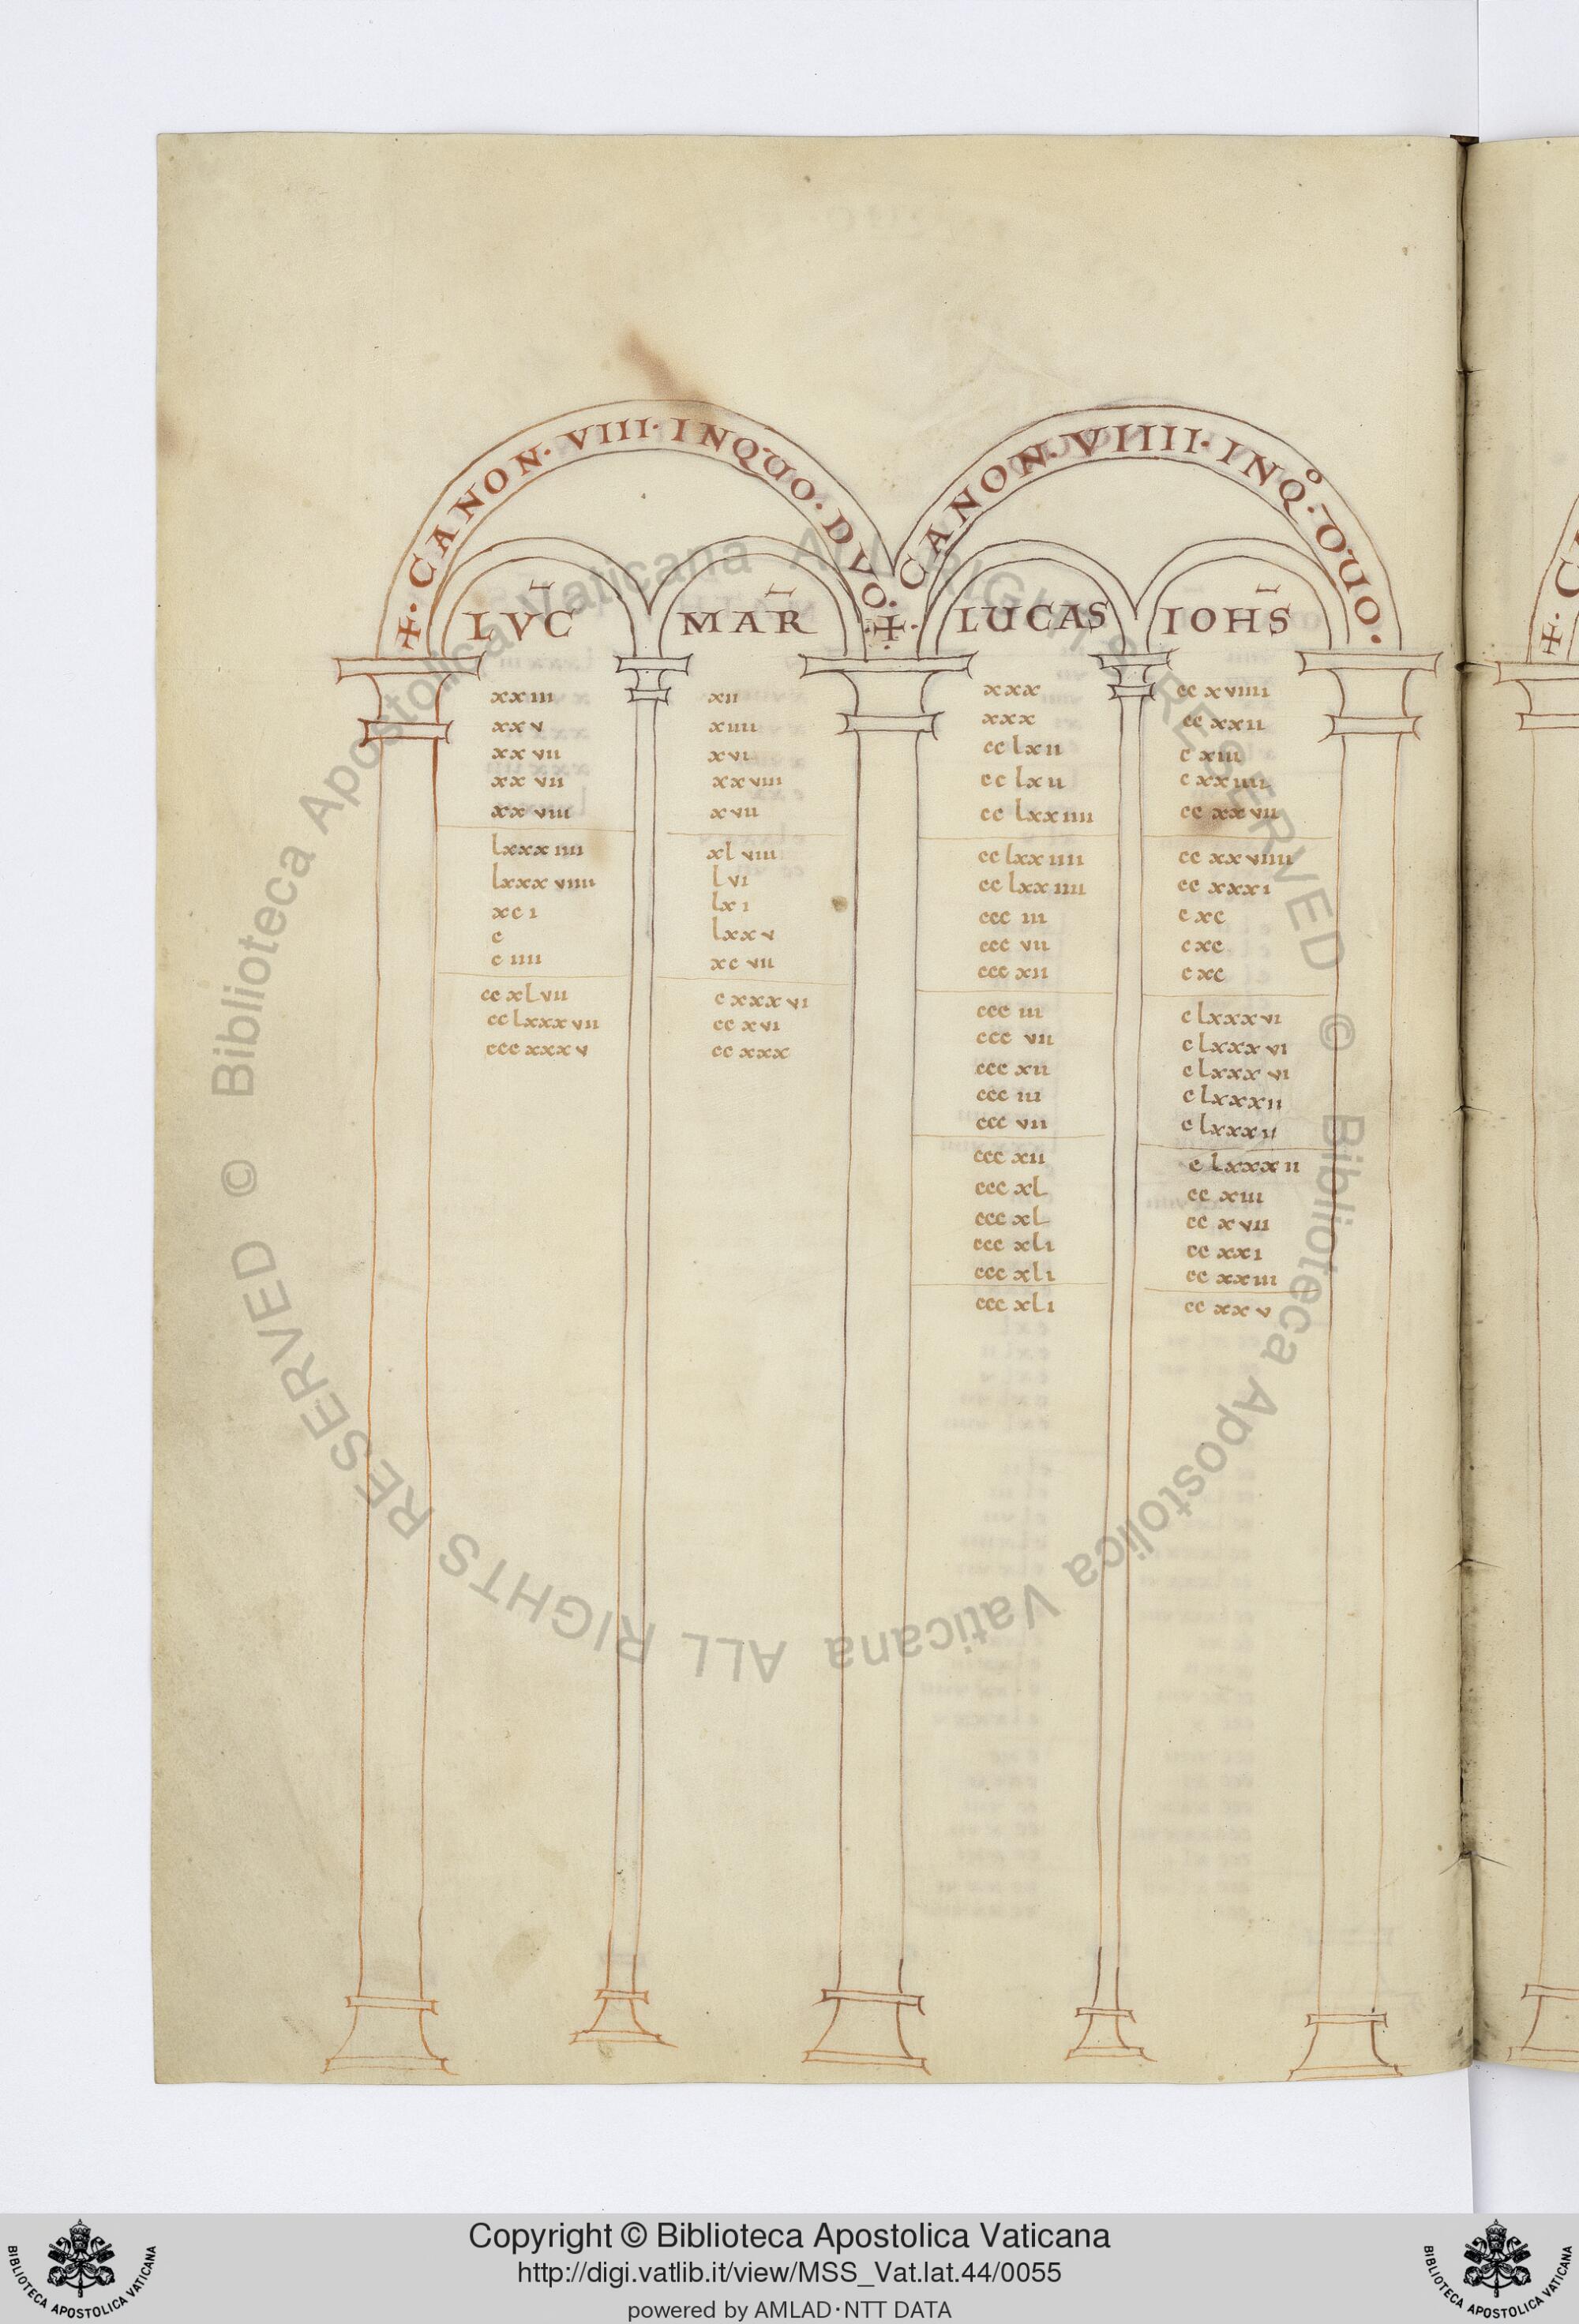 + · CANON · VIII · INQUO · DVO ·
+ · CANON · VIIII · INQº · DUO ·
LVC̄ MAR̄ LUCAS IOHS̄
xxiii xii
xxv xiiii
xxvii xvi
xxvii xxviii
xxviii xvii
lxxxiiii xlviii
lxxxviiii lvi
xci lxi
c lxxv
ciiii xcvii
ccxlvii cxxxvi
cclxxxvii ccxvi
cccxxxv ccxxx
xxx ccxviiii
xxx ccxxii
cclxii cxiii
cclxii cxxiiii
cclxxiiii ccxxvii
cclxxiiii ccxxviiii
cclxxiiii ccxxxi
ccciii cxc
cccvii cxc
cccxii cxc
ccciii clxxxvi
cccvii clxxxvi
cccxii clxxxvi
ccciii clxxxii
cccvii clxxxii
cccxii clxxxii
cccxl ccxiii
cccxl ccxvii
cccxli ccxxi
cccxli ccxxiii
cccxli ccxxv
© Biblioteca Apostolica Vaticana ALL RIGHTS RESERVED
© Biblioteca Apostolica Vaticana ALL RIGHTS RESERVED
Copyright © Biblioteca Apostolica Vaticana
http://digi.vatlib.it/view/MSS_Vat.lat.44/0055
powered by AMLAD·NTT DATA
BIBLIOTECA APOSTOLICA VATICANA
BIBLIOTECA APOSTOLICA VATICANA